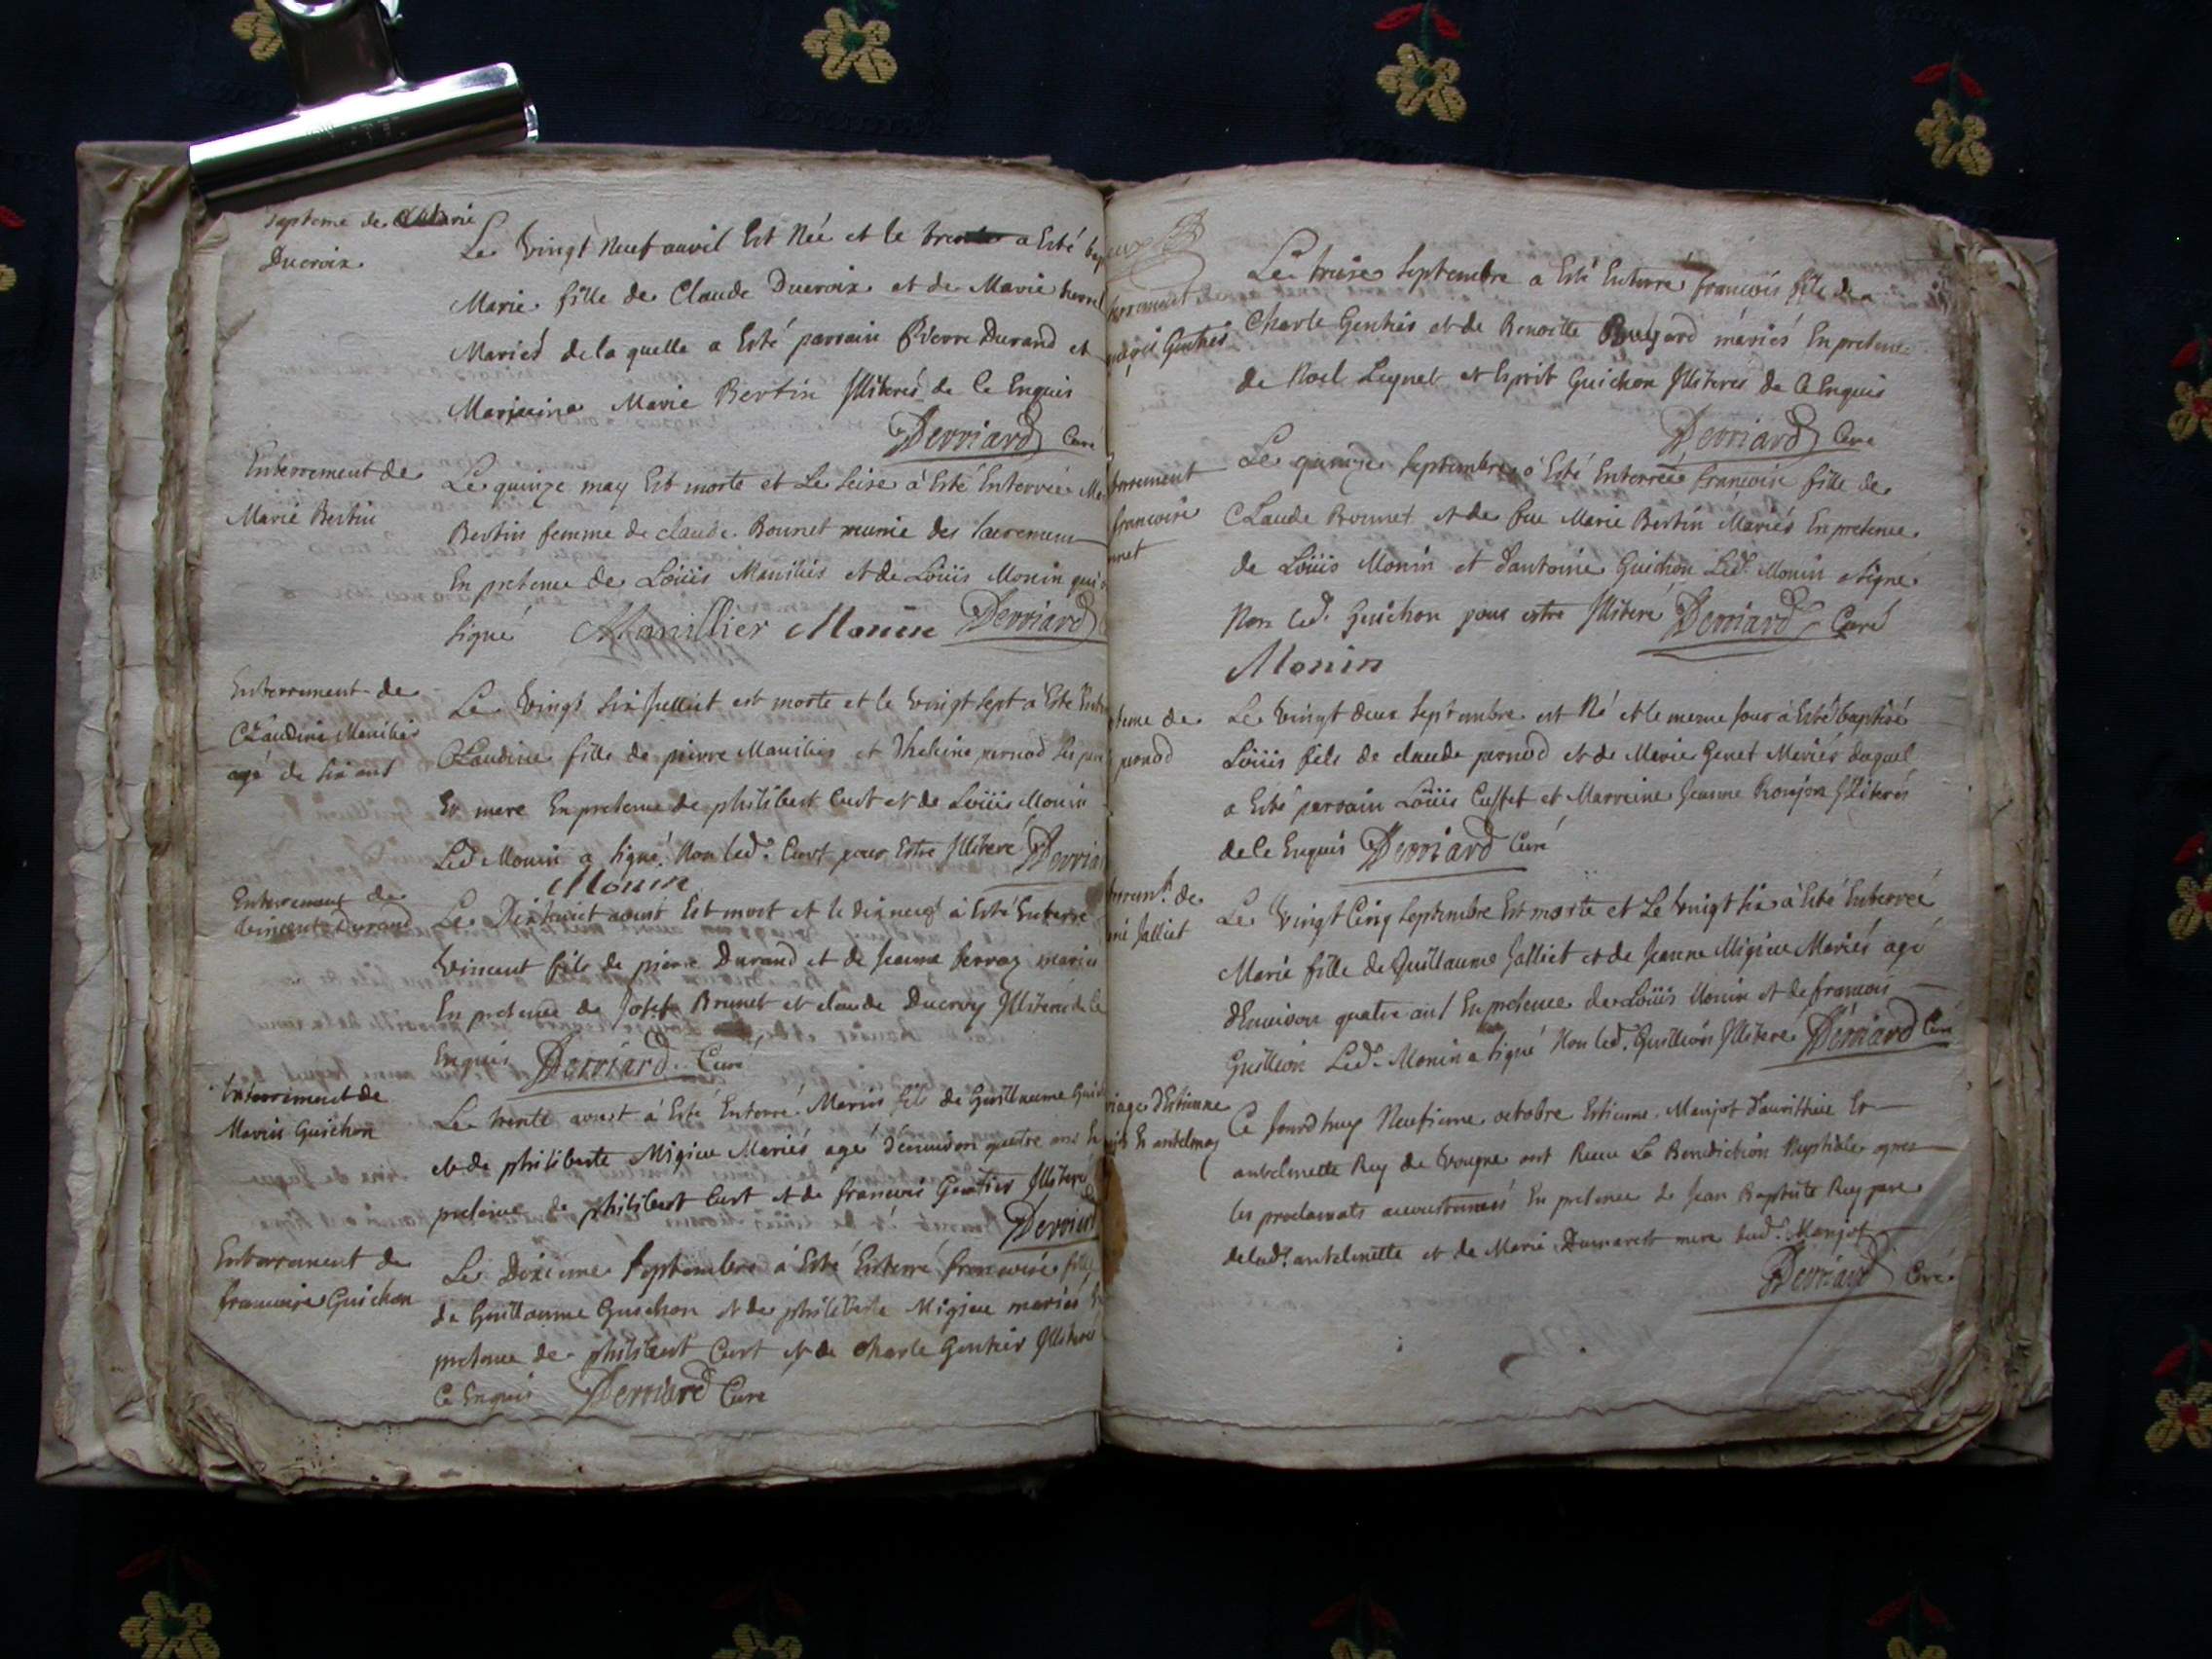 Bapteme de Marie
Ducroix
Le vingt Neuf auvril Est Née et le trente a Esté
Marie fille de Claude Ducroix et de Marie
Mariés de la quelle a Esté parrain Pierre Durand et
Marraine Marie Bertin Illiterés de Ce Enquis
Derriard Curé
Enterrement de
Marie Bertin
Le quinze may Est morte et Le seise à Esté Enterrée
Bertin femme de claude Bonnet munie des sacremens
En presence de Loüis Manilier et de Loüis Monin qui
signé Manillier Monin Derriard
Enterrement de
Claudine Manilier
agé de six ans
Le vingt six Juillet est morte et le vingt sept à Esté
Claudine fille de pierre Manilier et pernod ses
Et mere En presence de philibert Curt et de Loüis Monin
Led. Monin a signé Non led. Curt pour Estre Illiteré
Monin
Enterrement de
vincent Durand
Le Dixhuict aoust Est mort et le dixneuf à Esté Enterré
vincent fils de pierre Durand et de Jeanne ferraz mariés
En presence de Josef Brunet et claude Ducroy Illiterés de Ce
Enquis Derriard Curé
Enterrement de
Marin Guichon
Le trente aoust à Esté Enterré Marin fils de Guillaume
et de philiberte Migieu Mariés agé d'Environ quatre ans
presence de philibert Curt et de francois Gentier Illiterés
Derriard
Enterrement de
francoise Guichon
Le Dixieme Septembre à Esté Enterré francoise fille
de Guillaume Guichon et de philiberte Migieu mariés
presence de philibert Curt et de Charle Gentier Illiterés
Ce Enquis Derriard Curé
Gentier
Le treise Septembre a Esté Enterré francois fils de
Charle Gentier et de Benoitte mariés En presence
de Noel Leynet et Esprit Guichon Illiterés de Ce Enquis
Derriard Curé
francoise
Le quinze septembre à Esté Enterrée francoise fille de
Claude Bonnet et de feue Marie Bertin Mariés En presence
de Loüis Monin et d'antoine Guichon Led. Monin a signé
Non led. Guichon pour estre Illiteré Derriard Curé
Monin
pernod
Le vingt deux septembre est Né et le meme Jour à Esté baptisé
Loüis fils de claude pernod et de Marie Genet Mariés duquel
a Esté parrain Loüis Cusset et Marraine Jeanne Illiterés
de Ce Enquis Derriard Curé
Jalliet
Le vingt Cinq septembre Est morte et Le vingt six à Esté Enterrée
Marie fille de Guillaume Jalliet et de Jeanne Migieu Mariés agé
d'Environ quatre ans En presence de Loüis Monin et de francois
Guillion Led. Monin a signé Non led. Guillion Illiteré Derriard Curé
d'Estienne
Ce Jourd'huy Neufieme octobre Estienne Manjot Et
antelmette Rey de vougne ont Receu La Benediction Nuptiale apres
les proclamats accoustumés En presence de Jean Baptiste Rey pere
de lad. antelmette et de Marie Dumarest mere dud. Manjot
Derriard Curé